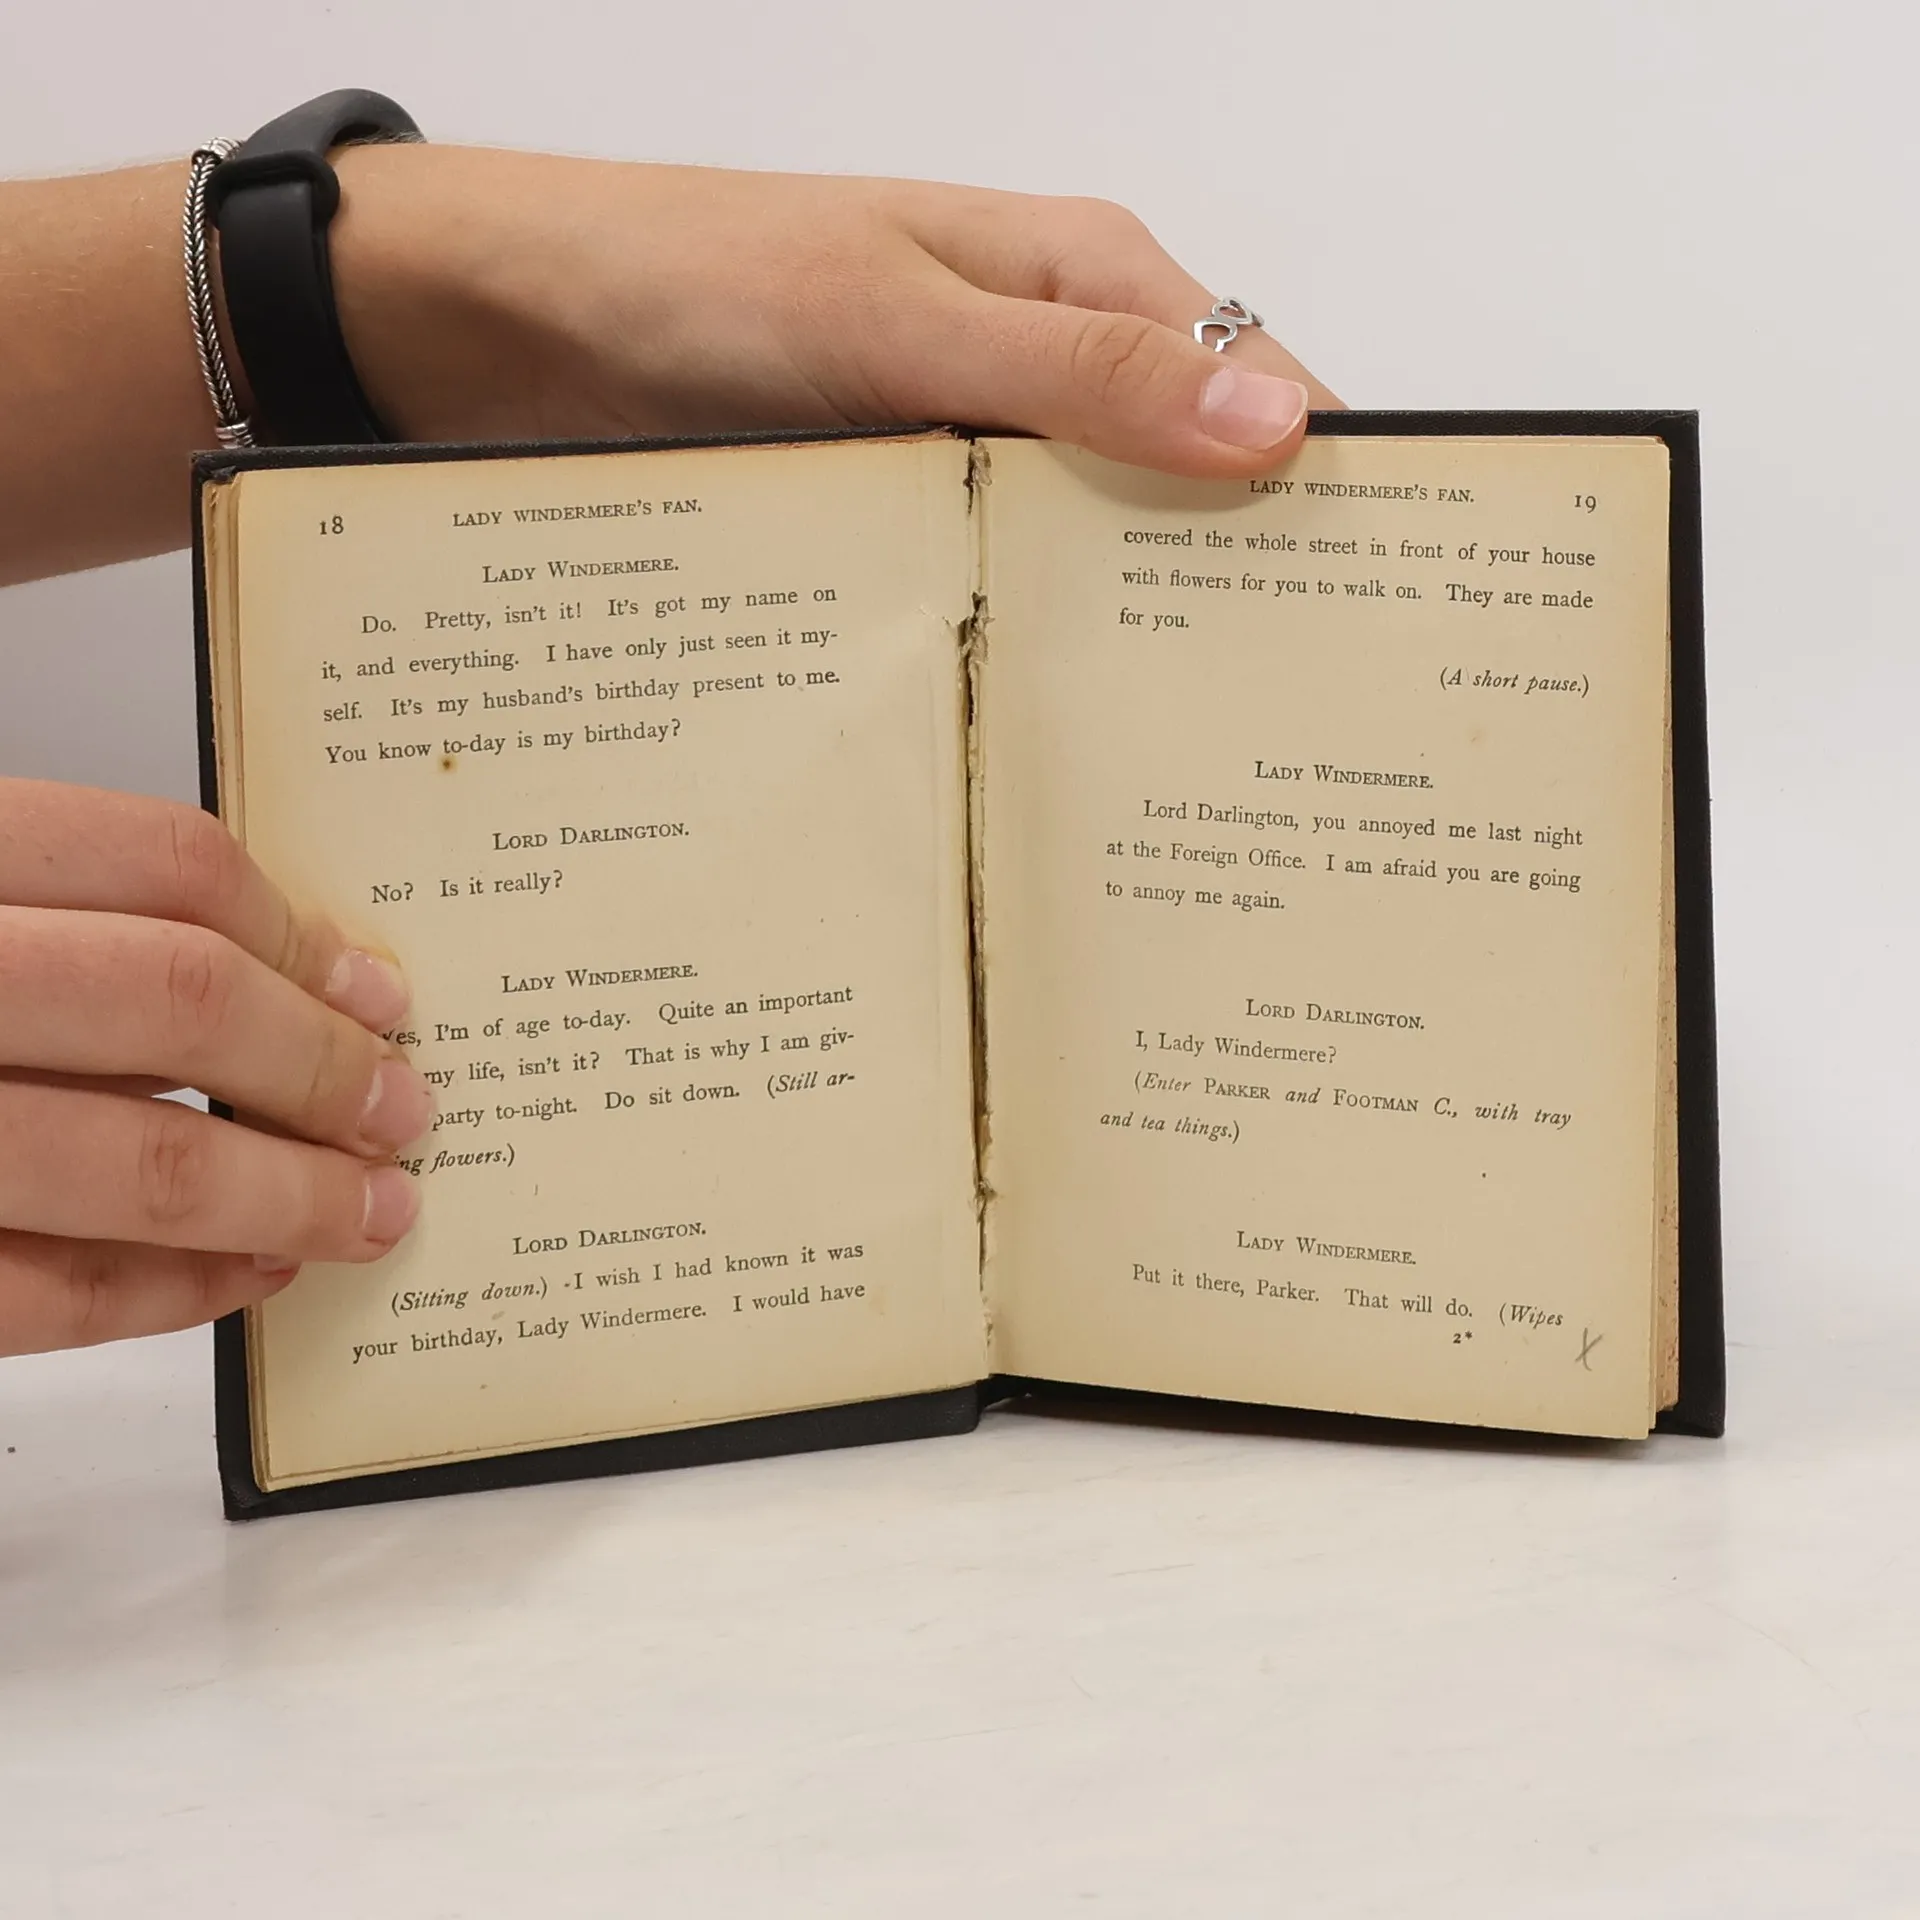 18 LADY WINDERMERE'S FAN.
LADY WINDERMERE.
Do. Pretty, isn't it! It's got my name on
it, and everything. I have only just seen it my-
self. It's my husband's birthday present to me.
You know to-day is my birthday?
LORD DARLINGTON.
No? Is it really?
LADY WINDERMERE.
Yes, I'm of age to-day. Quite an important
my life, isn't it? That is why I am giv-
party to-night. Do sit down. (Still ar-
ing flowers.)
LORD DARLINGTON.
(Sitting down.) I wish I had known it was
your birthday, Lady Windermere. I would have
LADY WINDERMERE'S FAN. 19
covered the whole street in front of your house
with flowers for you to walk on. They are made
for you.
(A short pause.)
LADY WINDERMERE.
Lord Darlington, you annoyed me last night
at the Foreign Office. I am afraid you are going
to annoy me again.
LORD DARLINGTON.
I, Lady Windermere?
(Enter PARKER and FOOTMAN C., with tray
and tea things.)
LADY WINDERMERE.
Put it there, Parker. That will do. (Wipes
2*
X